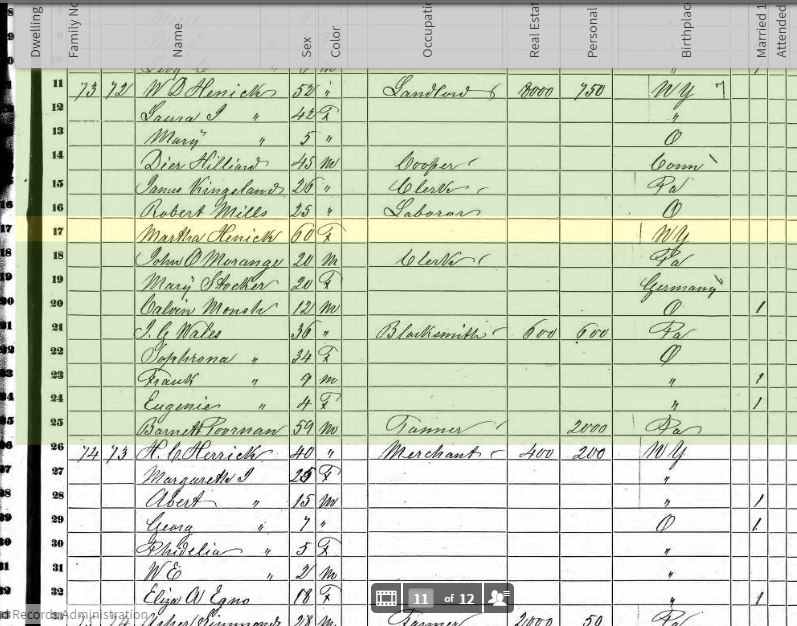 Dwelling Family No Name Sex Color Occupatio Real Estat Personal Birthplac Married 1 Attended
11 73 72 W D Henick 52 " Landlord 8000 750 N Y 7
12 Laura J " 42 F "
13 Mary " 5 " O
14 Dier Hilliard 45 m Cooper Conn
15 James Kingsland 26 " Clerk Pa
16 16 Robert Mills 25 " Laboror O
17 17 Martha Henick 60 F N Y
18 18 John O Morange 20 m Clerk Pa
19 19 Mary Stocker 20 F Germany
20 20 Calvin Monsh 12 m O 1
21 21 J. C Wales 36 " Blacksmith 600 600 Pa
22 22 Sophrona " 34 F O
23 23 Frank " 9 m " 1
24 24 Eugenie " 4 F " 1
25 25 Barnett Poorman 59 m Tanner 2000 Pa
26 26 74 73 H. C Herrick 40 " Merchant 400 200 N Y
27 27 Margareth J 25 F "
28 28 Abert " 15 m " 1
29 29 Georg " 7 " O 1
30 30 Phidelia " 5 F "
31 31 W E " 2 m "
32 32 Eliza A Egno 18 F " 1
11 of 12
Records Administration
Simmonds 28 m Farmer 2000 50 Pa